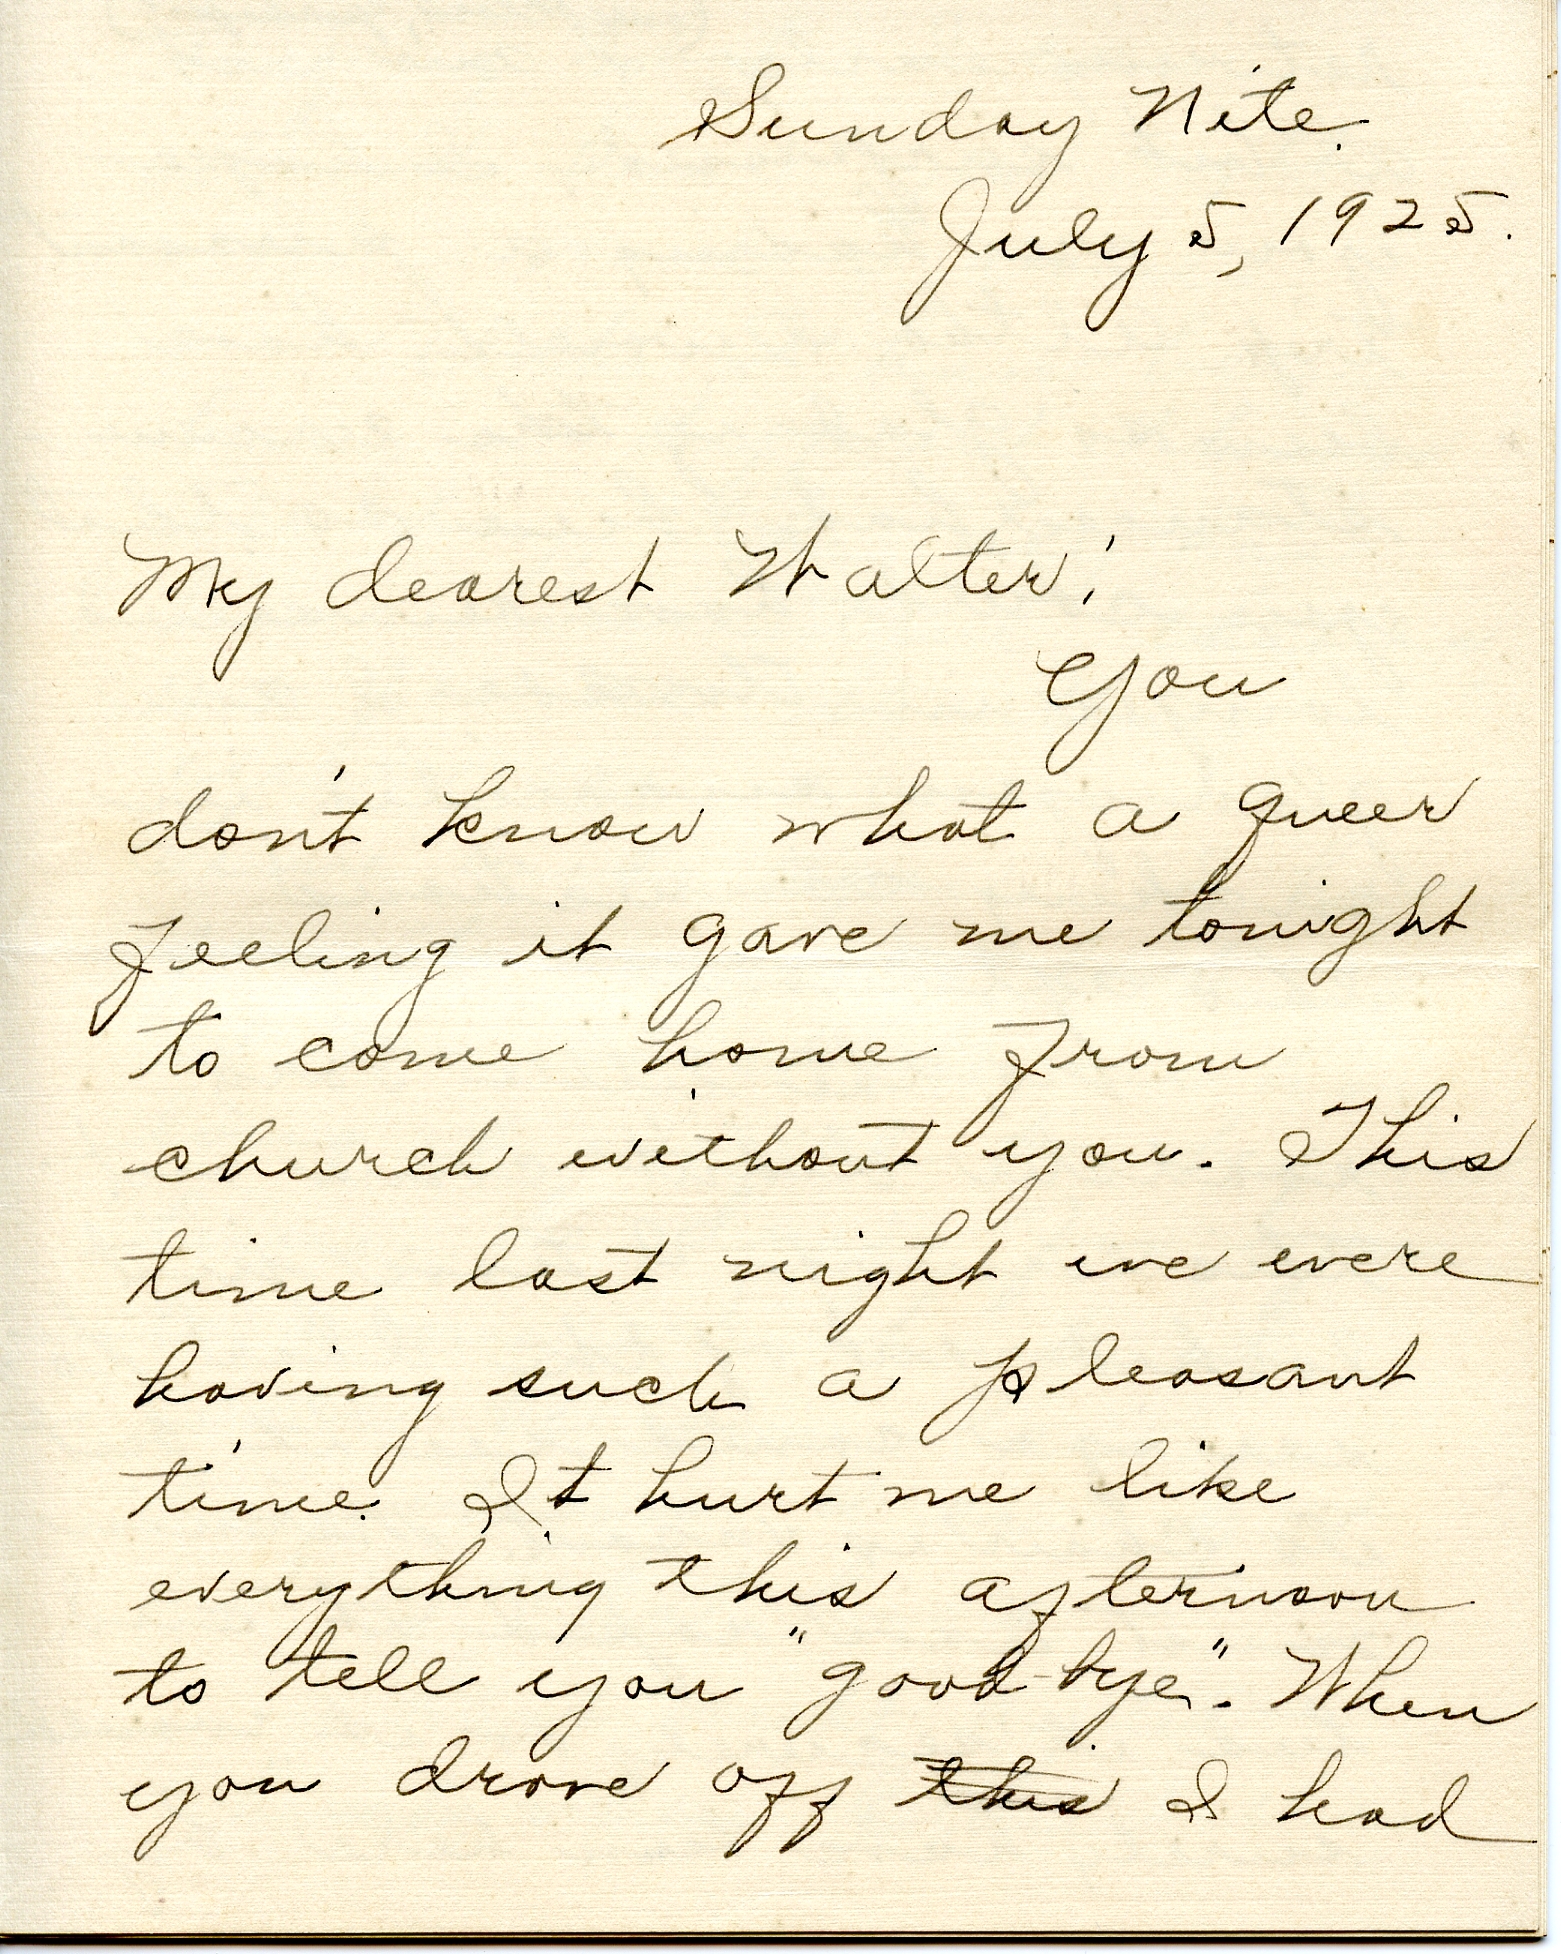 Sunday Nite.
July 5, 1925.
My dearest Walter:
You
don't know what a queer
feeling it gave me tonight
to come home from
church without you. This
time last night we were
having such a pleasant
time. It hurt me like
everything this afternoon
to tell you "good-bye". When
you drove off this I had